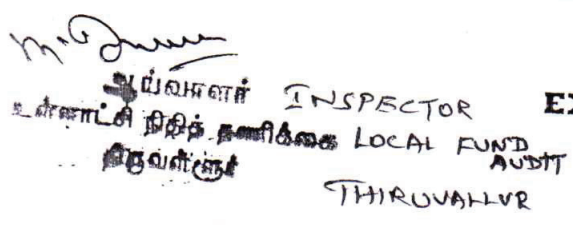 ஆய்வாளர் INSPECTOR
உள்ளாட்சி நிதித் தணிக்கை LOCAL FUND AUDIT
திருவள்ளூர்
THIRUVALLUR